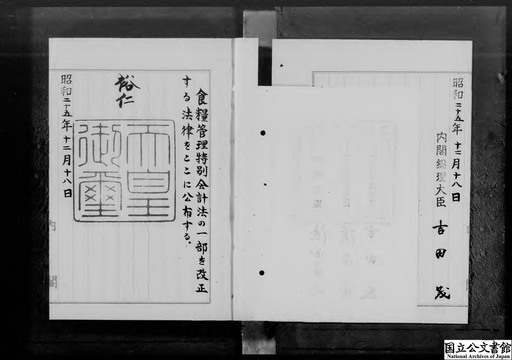 食糧管理特別会計法の一部を改正
する法律をここに公布する。
裕仁
天皇
御璽
昭和二十五年十二月十八日
内閣
昭和二十五年十二月十八日
内閣総理大臣 吉田茂
国立公文書館
National Archives of Japan